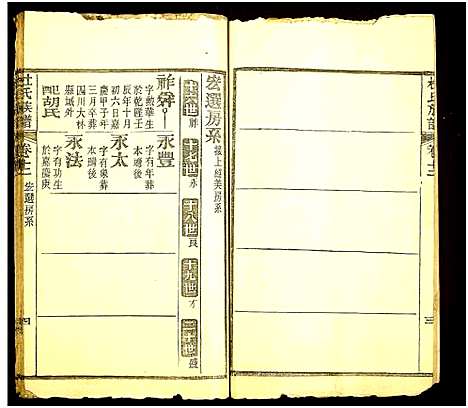 杜氏族譜
卷十二
三
宏選房系
接上經美房系
十六世 祚
十七世 永
十八世 良
十九世 才
二十世 盛
祚舜
字勳華生
於乾隆壬
辰年十月
初六日嘉
慶甲子年
三月卒葬
四川大林
縣城外
配胡氏
永豐
字有年葬
本壋後
永太
字有泉葬
本壋後
永法
字有功生
於嘉慶庚
杜氏族譜
卷十二
宏選房系
四